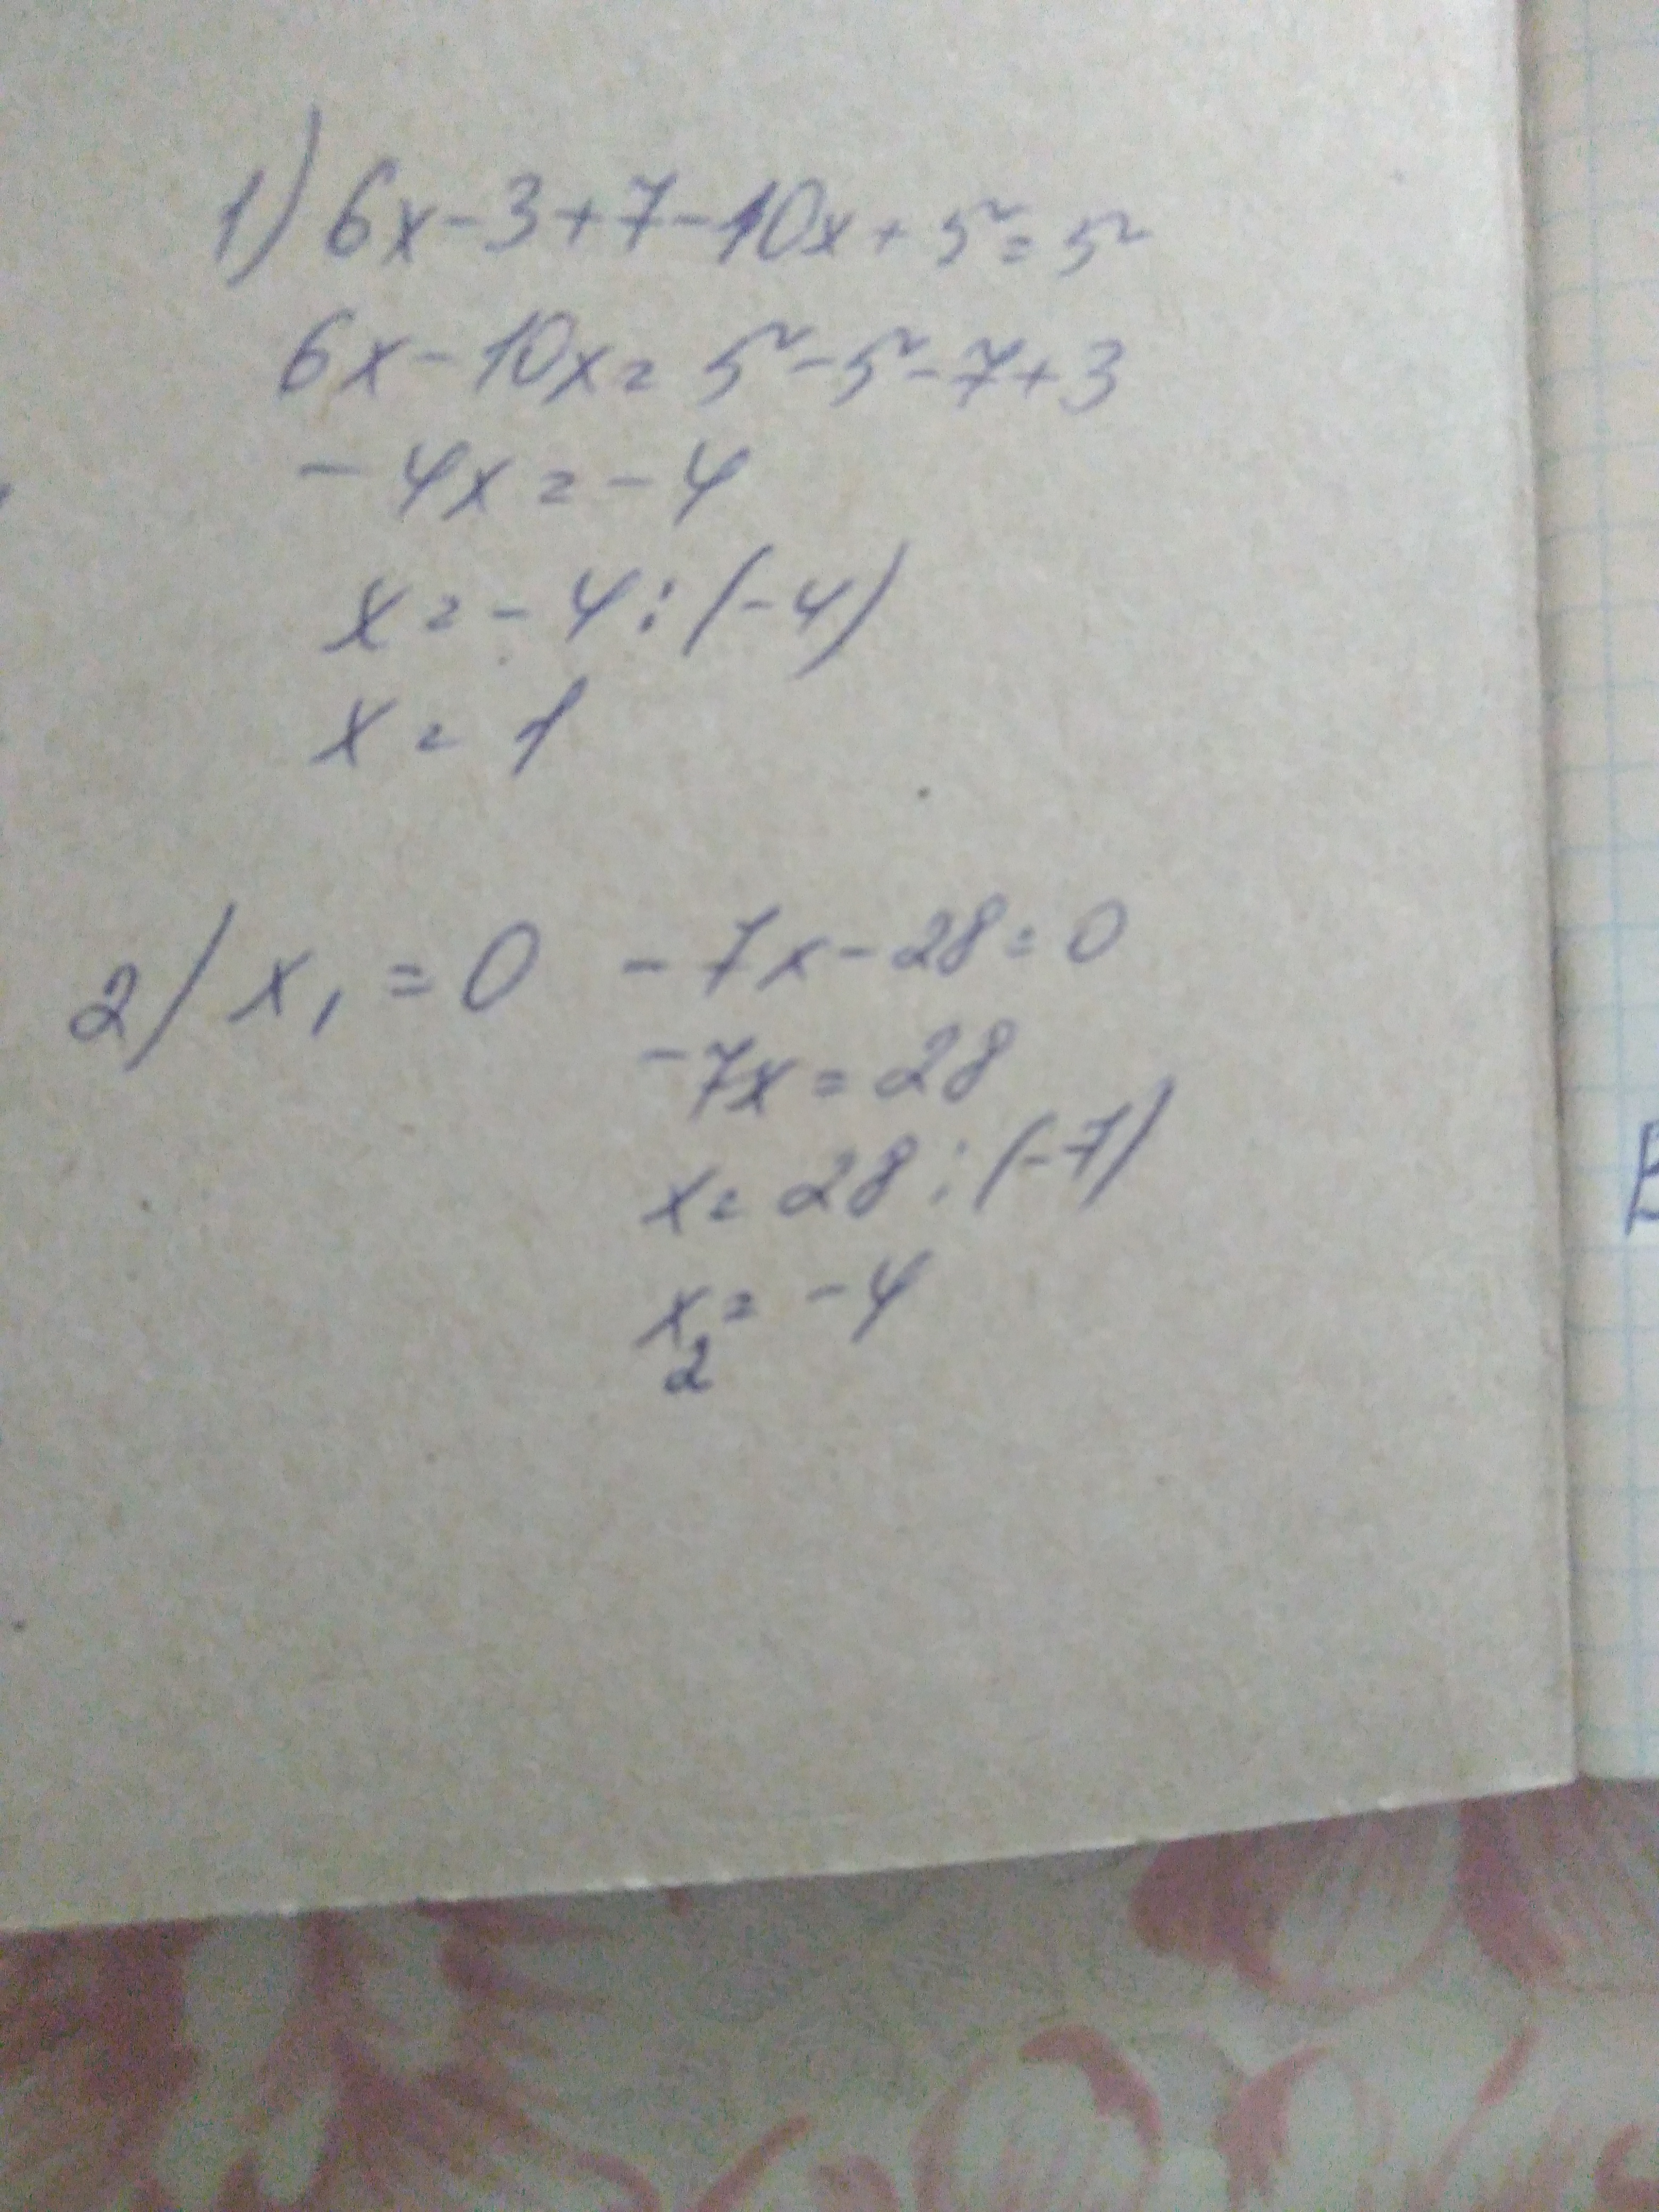 1) 6x-3+7-10x+5²=5²
6x-10x=5²-5²-7+3
-4x=-4
x=-4:(-4)
x=1
2) x₁=0 -7x-28=0
-7x=28
x=28:(-7)
x₂=-4